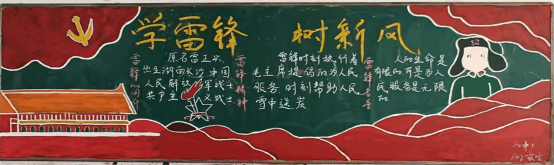 学雷锋 树新风
雷锋简介
原名雷正兴
出生湖南长沙,中国
人民解放军战士
共产主义战士
雷锋精神
雷锋时刻执行着
毛主席提倡的为人民
服务,时刻帮助人民
雪中送炭
雷锋名言
人的生命是
有限的,可是为人
民服务是无限
的